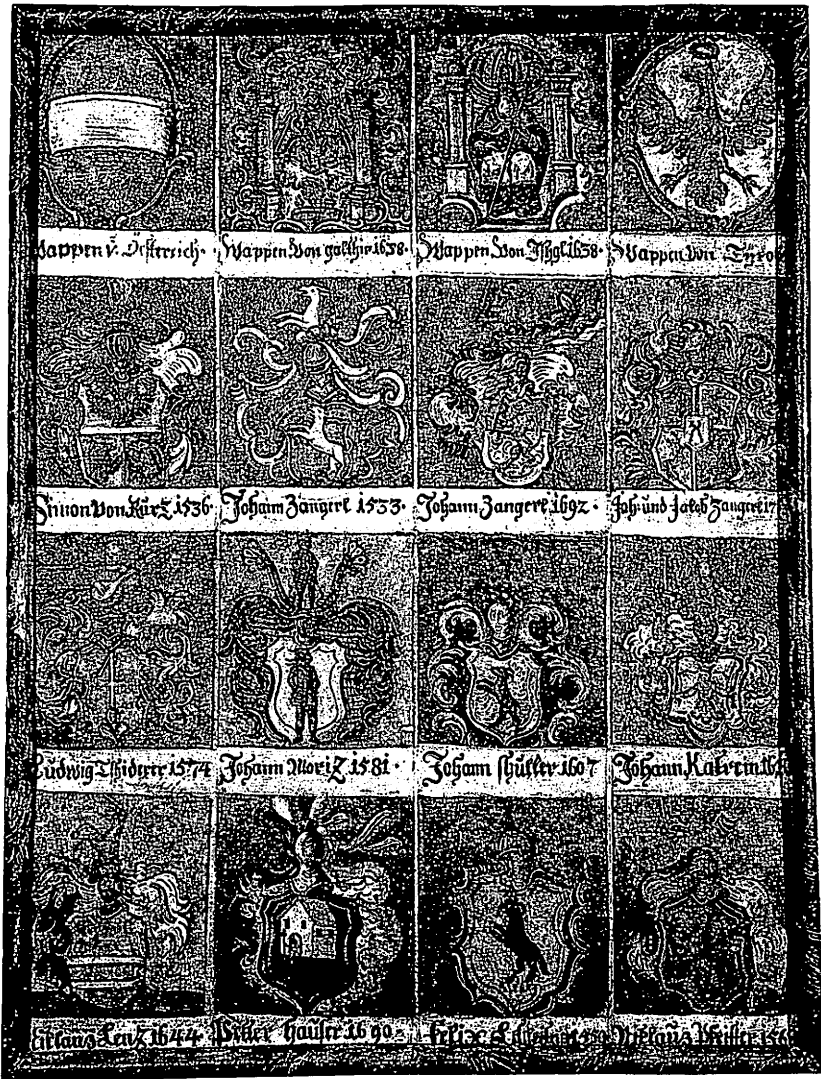 Wappen v. Österreich. Wappen Von galthir 1638. Wappen Von Jschgl 1638. Wappen von Tÿrol
Simon Von Kürz 1536. Johann Zangerl 1533. Johann Zangerl 1692. Joh. und Jakob Zangerl 17
Ludwig Tschiderer 1574 Johann Moriz 1581. Johann schuller 1607 Johann
Niklaus Lenz 1644 Petter hauser 1690 Felix Niklaus